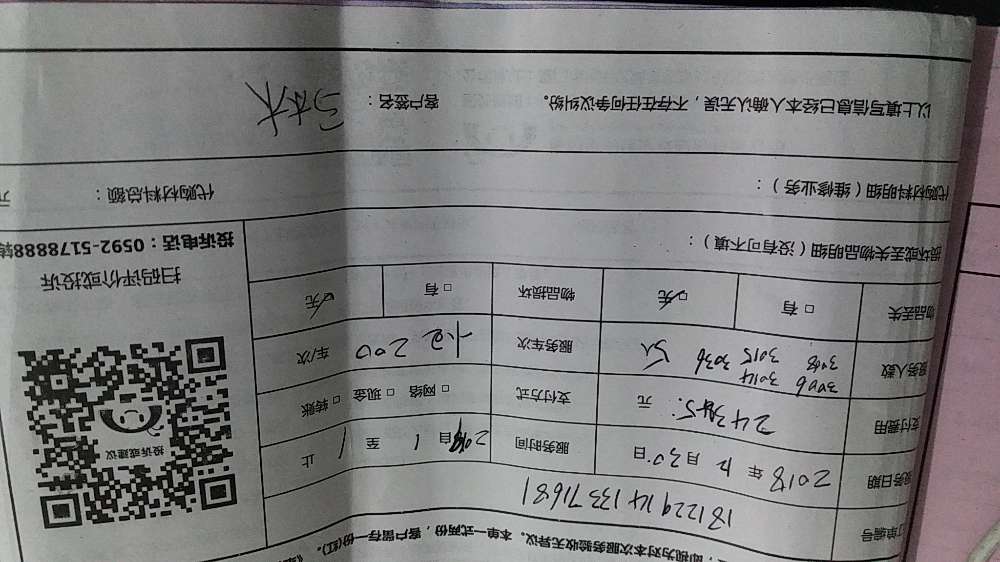 即视为对本次服务验收无异议。本单一式两份，客户留存一份(红)。
订单编号 18122914133 71681
服务日期 2018 年 12 月 30 日 服务时间 自 / 至 / 止
支付费用 元 支付方式 □ 网络 □ 现金 □ 转账
服务人数 3006 3014 3008 3015 3036 5人 服务车次 200 车/次
物品丢失 □ 有 ☑ 无 物品损坏 □ 有 ☑ 无
投诉或建议
扫码评价或投诉
投诉电话：0592-5178888转
损坏或丢失物品明细（没有可不填）：
代购材料明细（维修业务）： 代购材料总额： 元
以上填写信息已经本人确认无误，不存在任何争议纠纷。 客户签名：